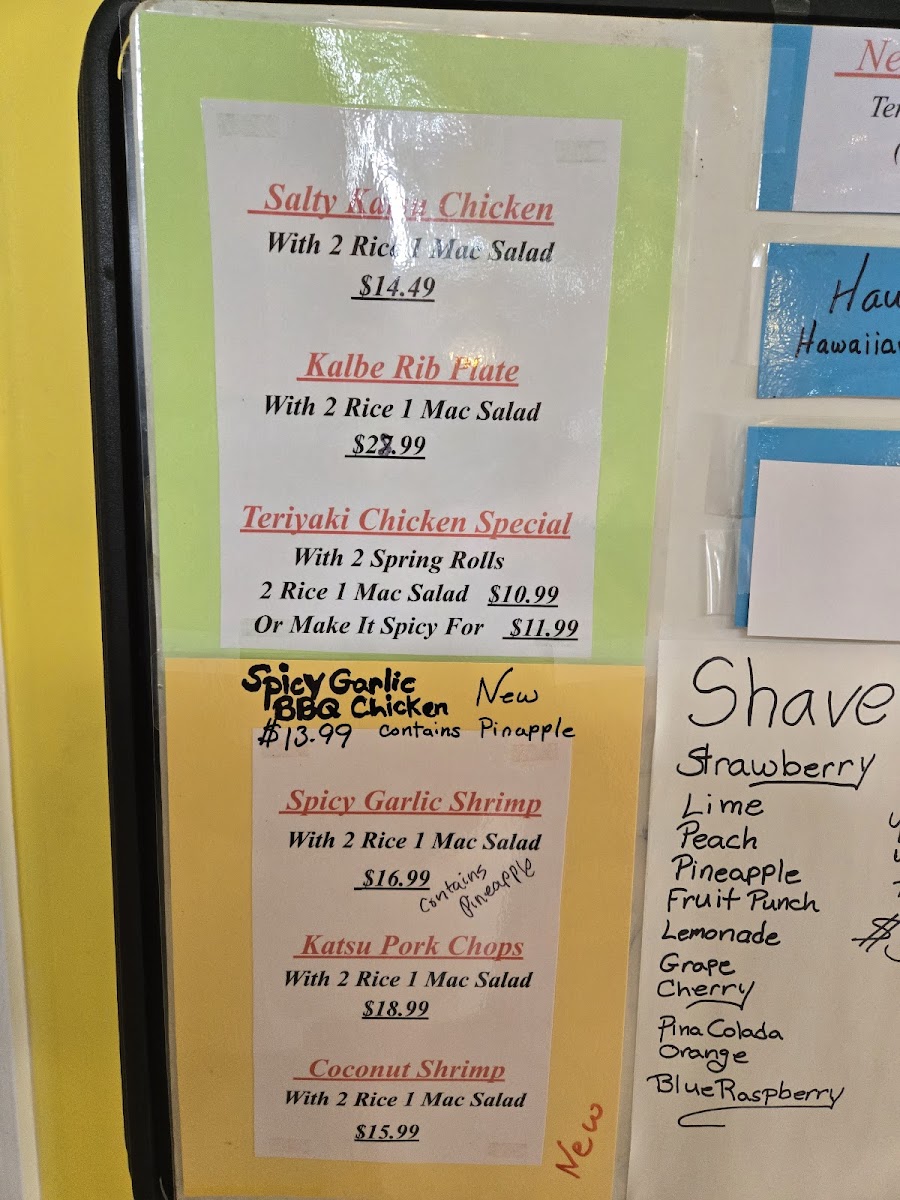 Salty Chicken
With 2 Rice 1 Mac Salad
$14.49
Kalbe Rib Plate
With 2 Rice 1 Mac Salad
$28.99
Teriyaki Chicken Special
With 2 Spring Rolls
2 Rice 1 Mac Salad $10.99
Or Make It Spicy For $11.99
Spicy Garlic New
BBQ Chicken
$13.99 contains Pinapple
Spicy Garlic Shrimp
With 2 Rice 1 Mac Salad
$16.99
contains
Pineapple
Katsu Pork Chops
With 2 Rice 1 Mac Salad
$18.99
Coconut Shrimp
With 2 Rice 1 Mac Salad
$15.99
New
Ne
Ter
(
Hau
Hawaiia
Shave
Strawberry
Lime
Peach
Pineapple
Fruit Punch
Lemonade
Grape
Cherry
Pina Colada
Orange
Blue Raspberry
$